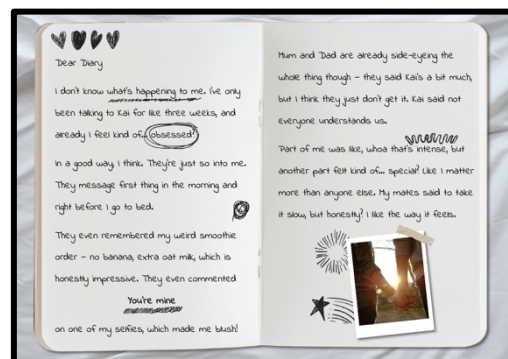 Dear Diary
I don't know what's happening to me. I've only
been talking to Kai for like three weeks, and
already I feel kind of... obsessed?
In a good way, I think. They're just so into me.
They message first thing in the morning and
right before I go to bed.
They even remembered my weird smoothie
order – no banana, extra oat milk, which is
honestly impressive. They even commented
You're mine
on one of my selfies, which made me blush!
Mum and Dad are already side-eyeing the
whole thing though – they said Kai's a bit much,
but I think they just don't get it. Kai said not
everyone understands us.
Part of me was like, whoa that's intense, but
another part felt kind of... special? Like I matter
more than anyone else. My mates said to take
it slow, but honestly? I like the way it feels.